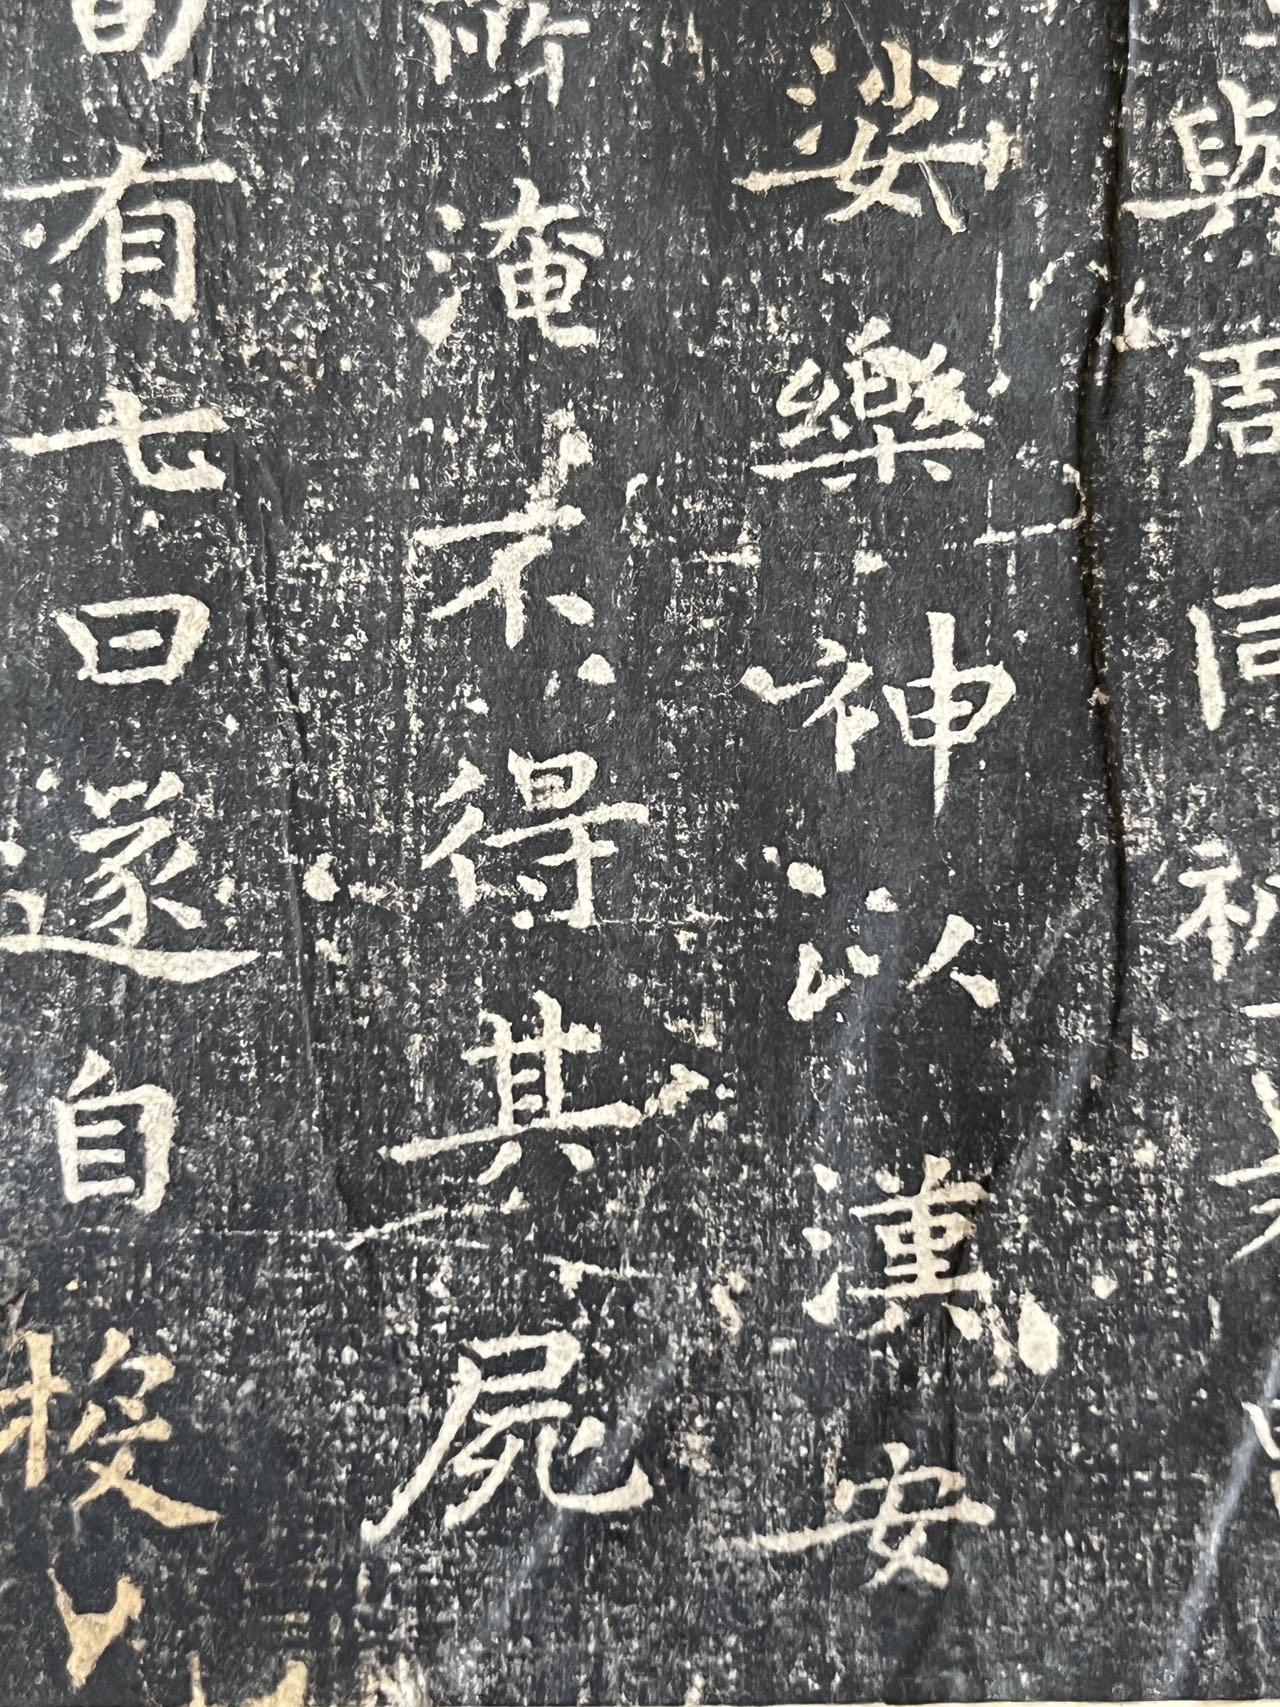 與周同祖
娑樂神以漢安
所淹不得其屍
旬有七日遂自投